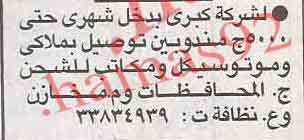 ●لشركة كبرى بدخل شهرى حتى
٥٠٠٠ج مندوبين توصيل بملاكى
وموتوسيكل ومكاتب للشحن
ج. المحافظات ومخازن
وع. نظافة ت : ٣٣٨٣٤٩٣٩